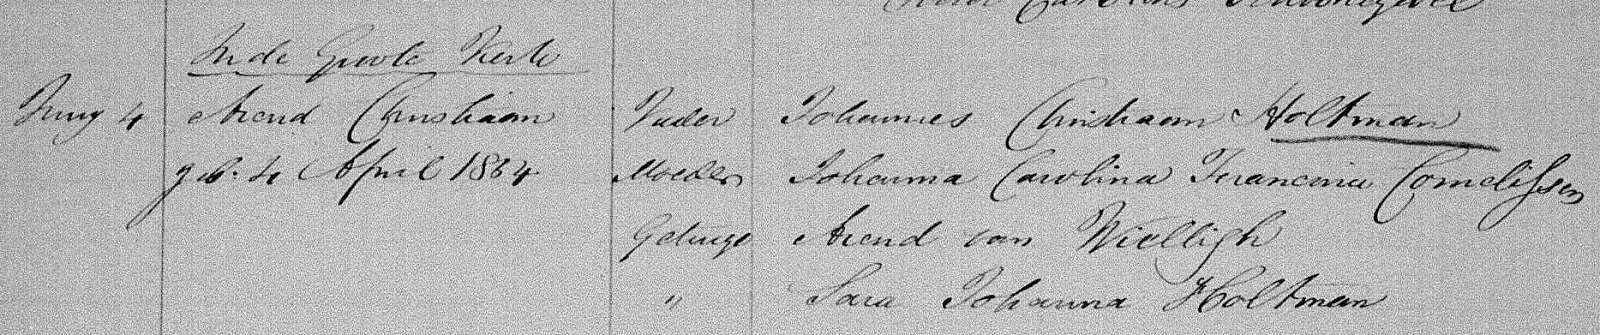 In de Groote Kerk
Juny 4 Arend Christiaan Vader Johannes Christiaan Holtman
geb. 4 April 1864 Moeder Johanna Carolina Francina Cornelissen
Getuige Arend van Wielligh
" Sara Johanna Holtman